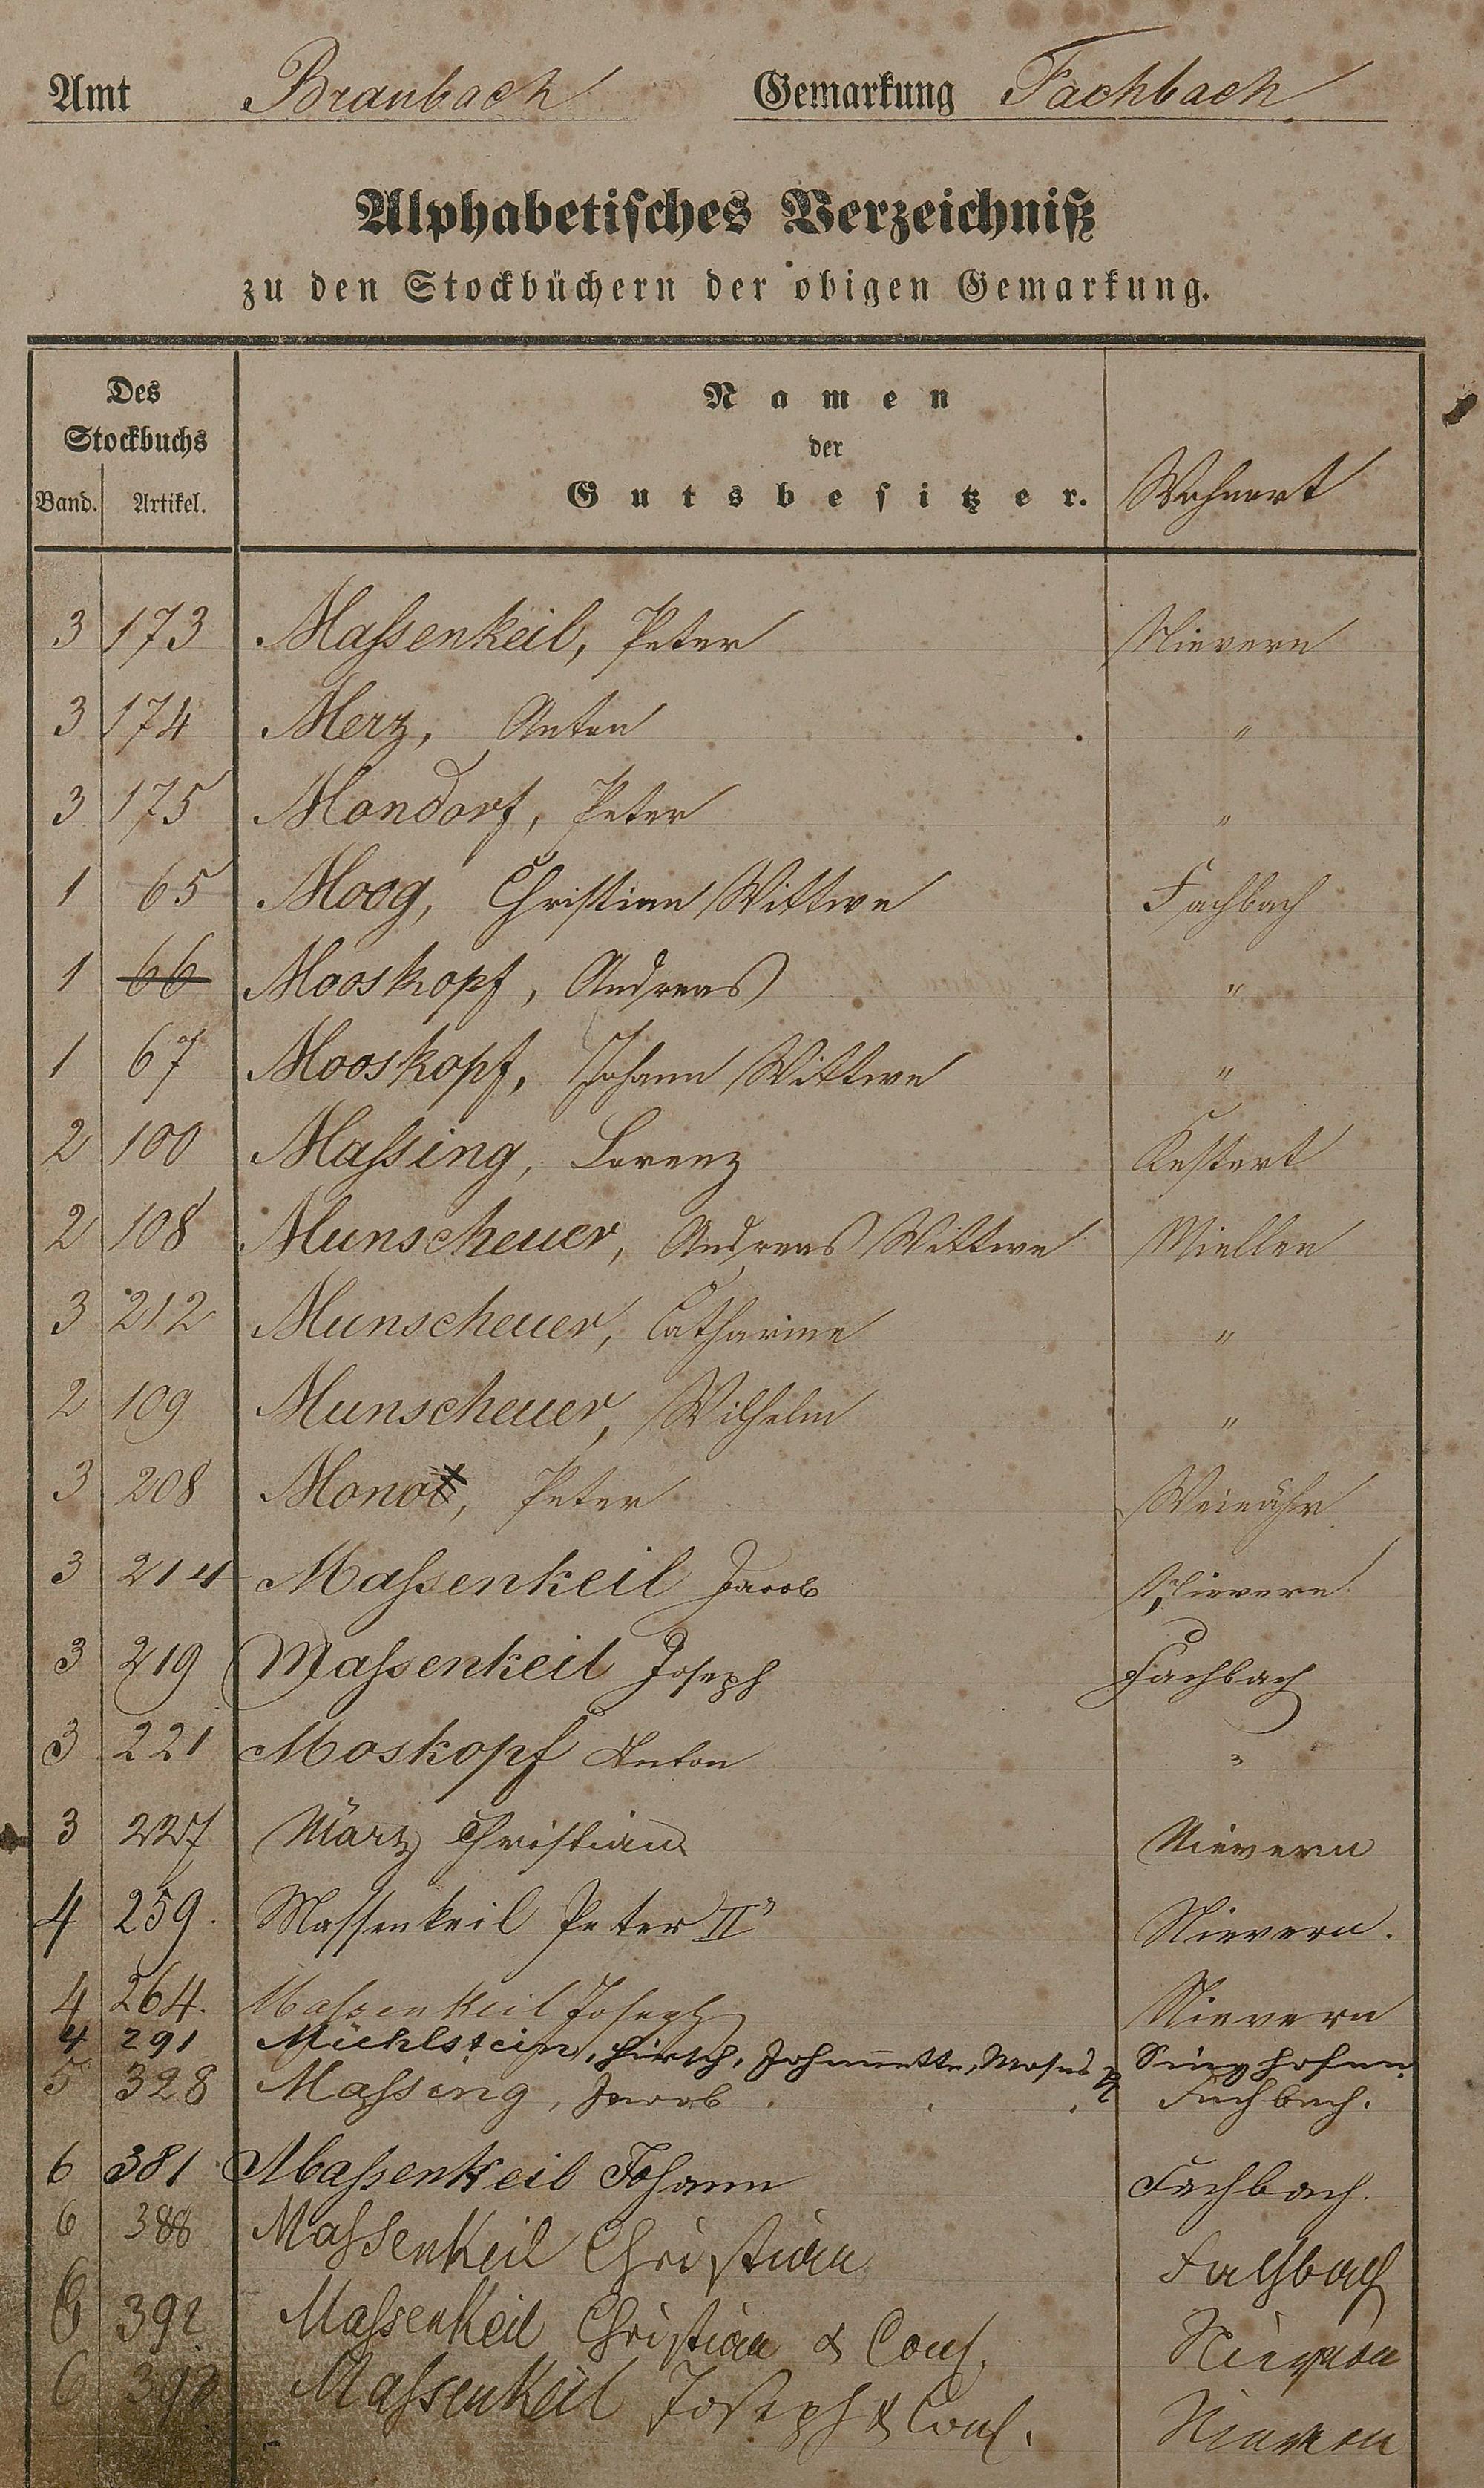 Amt Braubach Gemarkung Fachbach
Alphabetisches Verzeichniß
zu den Stockbüchern der obigen Gemarkung.
Des Stockbuchs
Band. Artikel.
Namen
der
Gutsbesitzer.
Wohnort
3 173 Maßenkeil, Peter Nievern
3 174 Merz, Anton "
3 175 Mondorf, Peter "
1 65 Moog, Christian Wittwe Fachbach
1 66 Mooskopf, Andreas "
1 67 Mooskopf, Johann Wittwe "
2 100 Maßing, Lorenz Kestert
2 108 Munscheuer, Andreas Wittwe Miellen
3 212 Munscheuer, Catharine "
2 109 Munscheuer, Wilhelm "
3 208 Monot, Peter Weinähr
3 214 Maßenkeil Jacob Nievern
3 219 Maßenkeil Joseph Fachbach
3 221 Moskopf Anton "
3 227 März Christian Nievern
4 259. Massenkeil Peter IIr Nievern.
4 264. Maßenkeil Joseph Nievern
4 291 Mühlstein, Hirsch, Johannette, Moses Singhofen
5 328 Maßing, Jacob Fachbach.
6 381 Maßenkeil Johann Fachbach.
6 388 Maßenkeil Christian Fachbach
6 392 Maßenkeil Christian & Cons. Nievern
6 Maßenkeil Joseph & Cons. Nievern